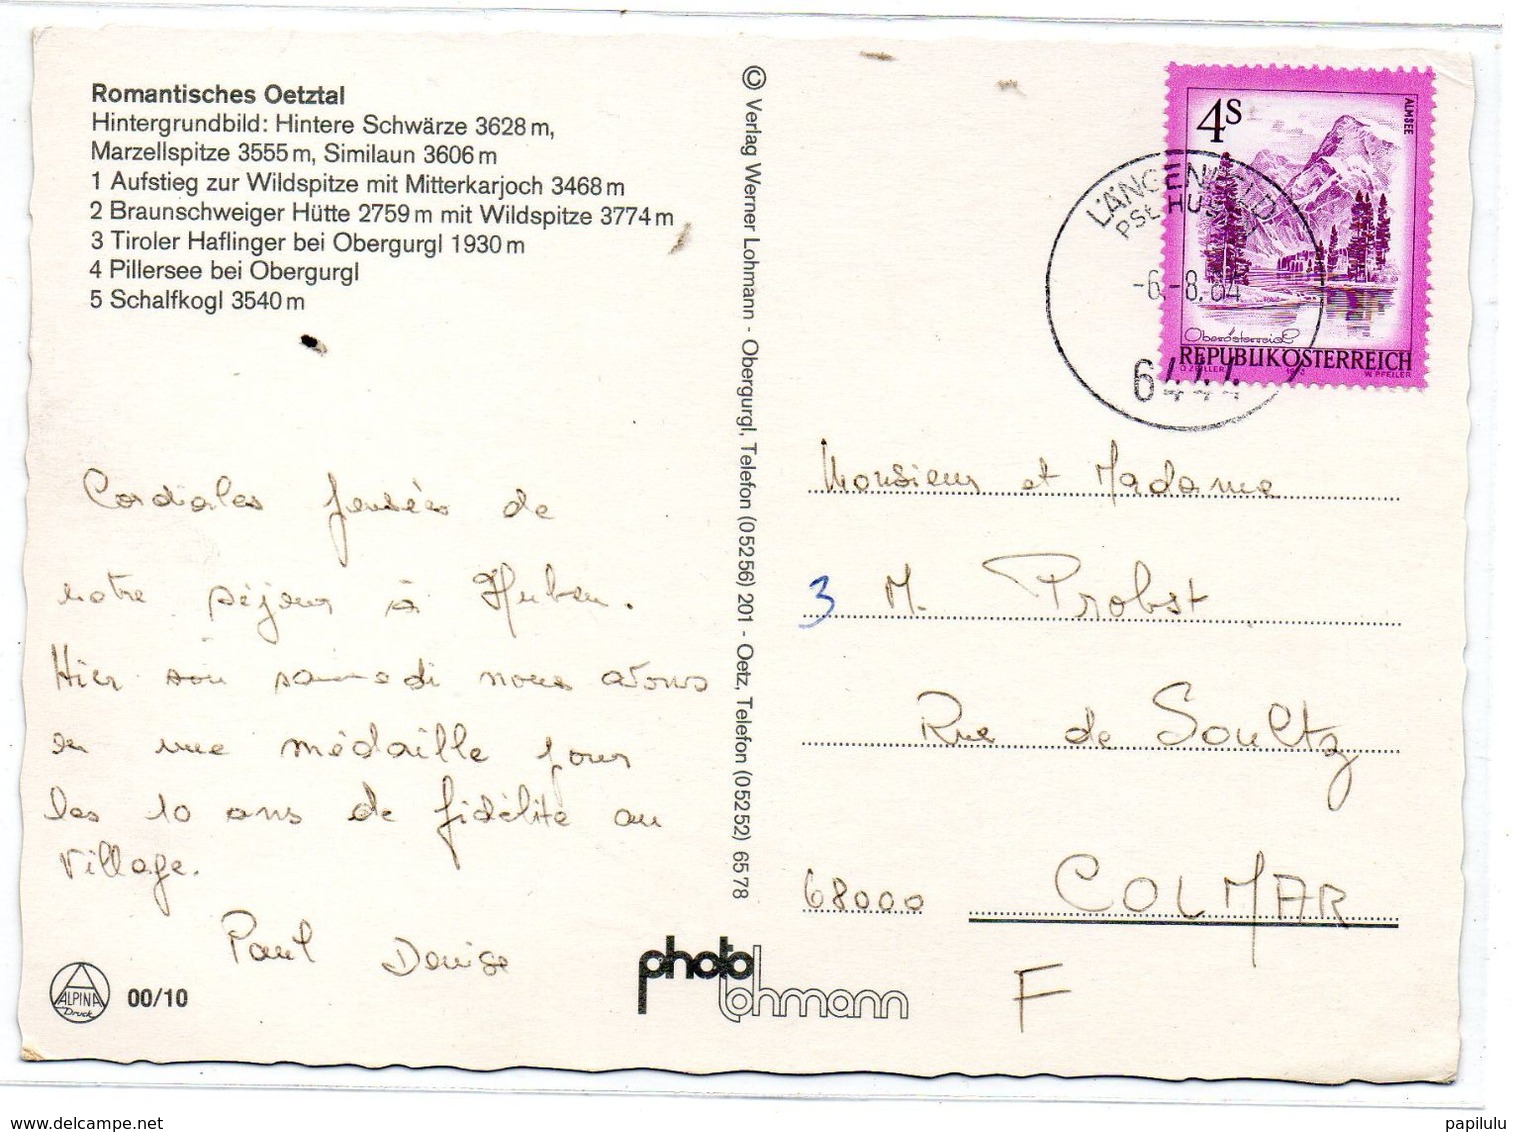 Romantisches Oetztal
Hintergrundbild: Hintere Schwärze 3628 m,
Marzellspitze 3555 m, Similaun 3606 m
1 Aufstieg zur Wildspitze mit Mitterkarjoch 3468 m
2 Braunschweiger Hütte 2759 m mit Wildspitze 3774 m
3 Tiroler Haflinger bei Obergurgl 1930 m
4 Pillersee bei Obergurgl
5 Schalfkogl 3540 m
Cordiales pensées de
notre séjour à Huben.
Hier soir samedi nous avons
eu une médaille pour
les 10 ans de fidélité au
village.
Paul Denise
ALPINA
Druck
00/10
© Verlag Werner Lohmann - Obergurgl, Telefon (05256) 201 - Oetz, Telefon (05252) 6578
photo
lohmann
4S
ALMSEE
Oberösterreich
REPUBLIK ÖSTERREICH
O. ZEILLER
W. PFEILER
LÄNGENFELD
HUBEN
-6.-8.-84
6444
Monsieur et Madame
3 M. Probst
Rue de Soultz
68000 COLMAR
F
www.delcampe.net
papilulu